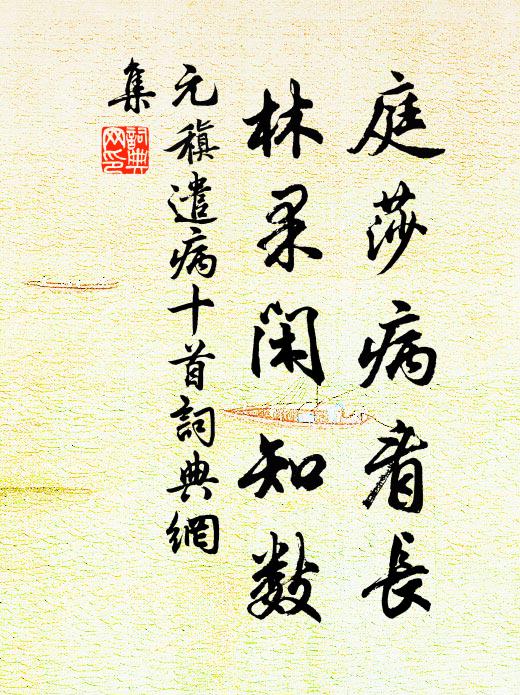 庭莎病看長
林果閑知數
元稹遣病十首詞典網
集
詞典
網印